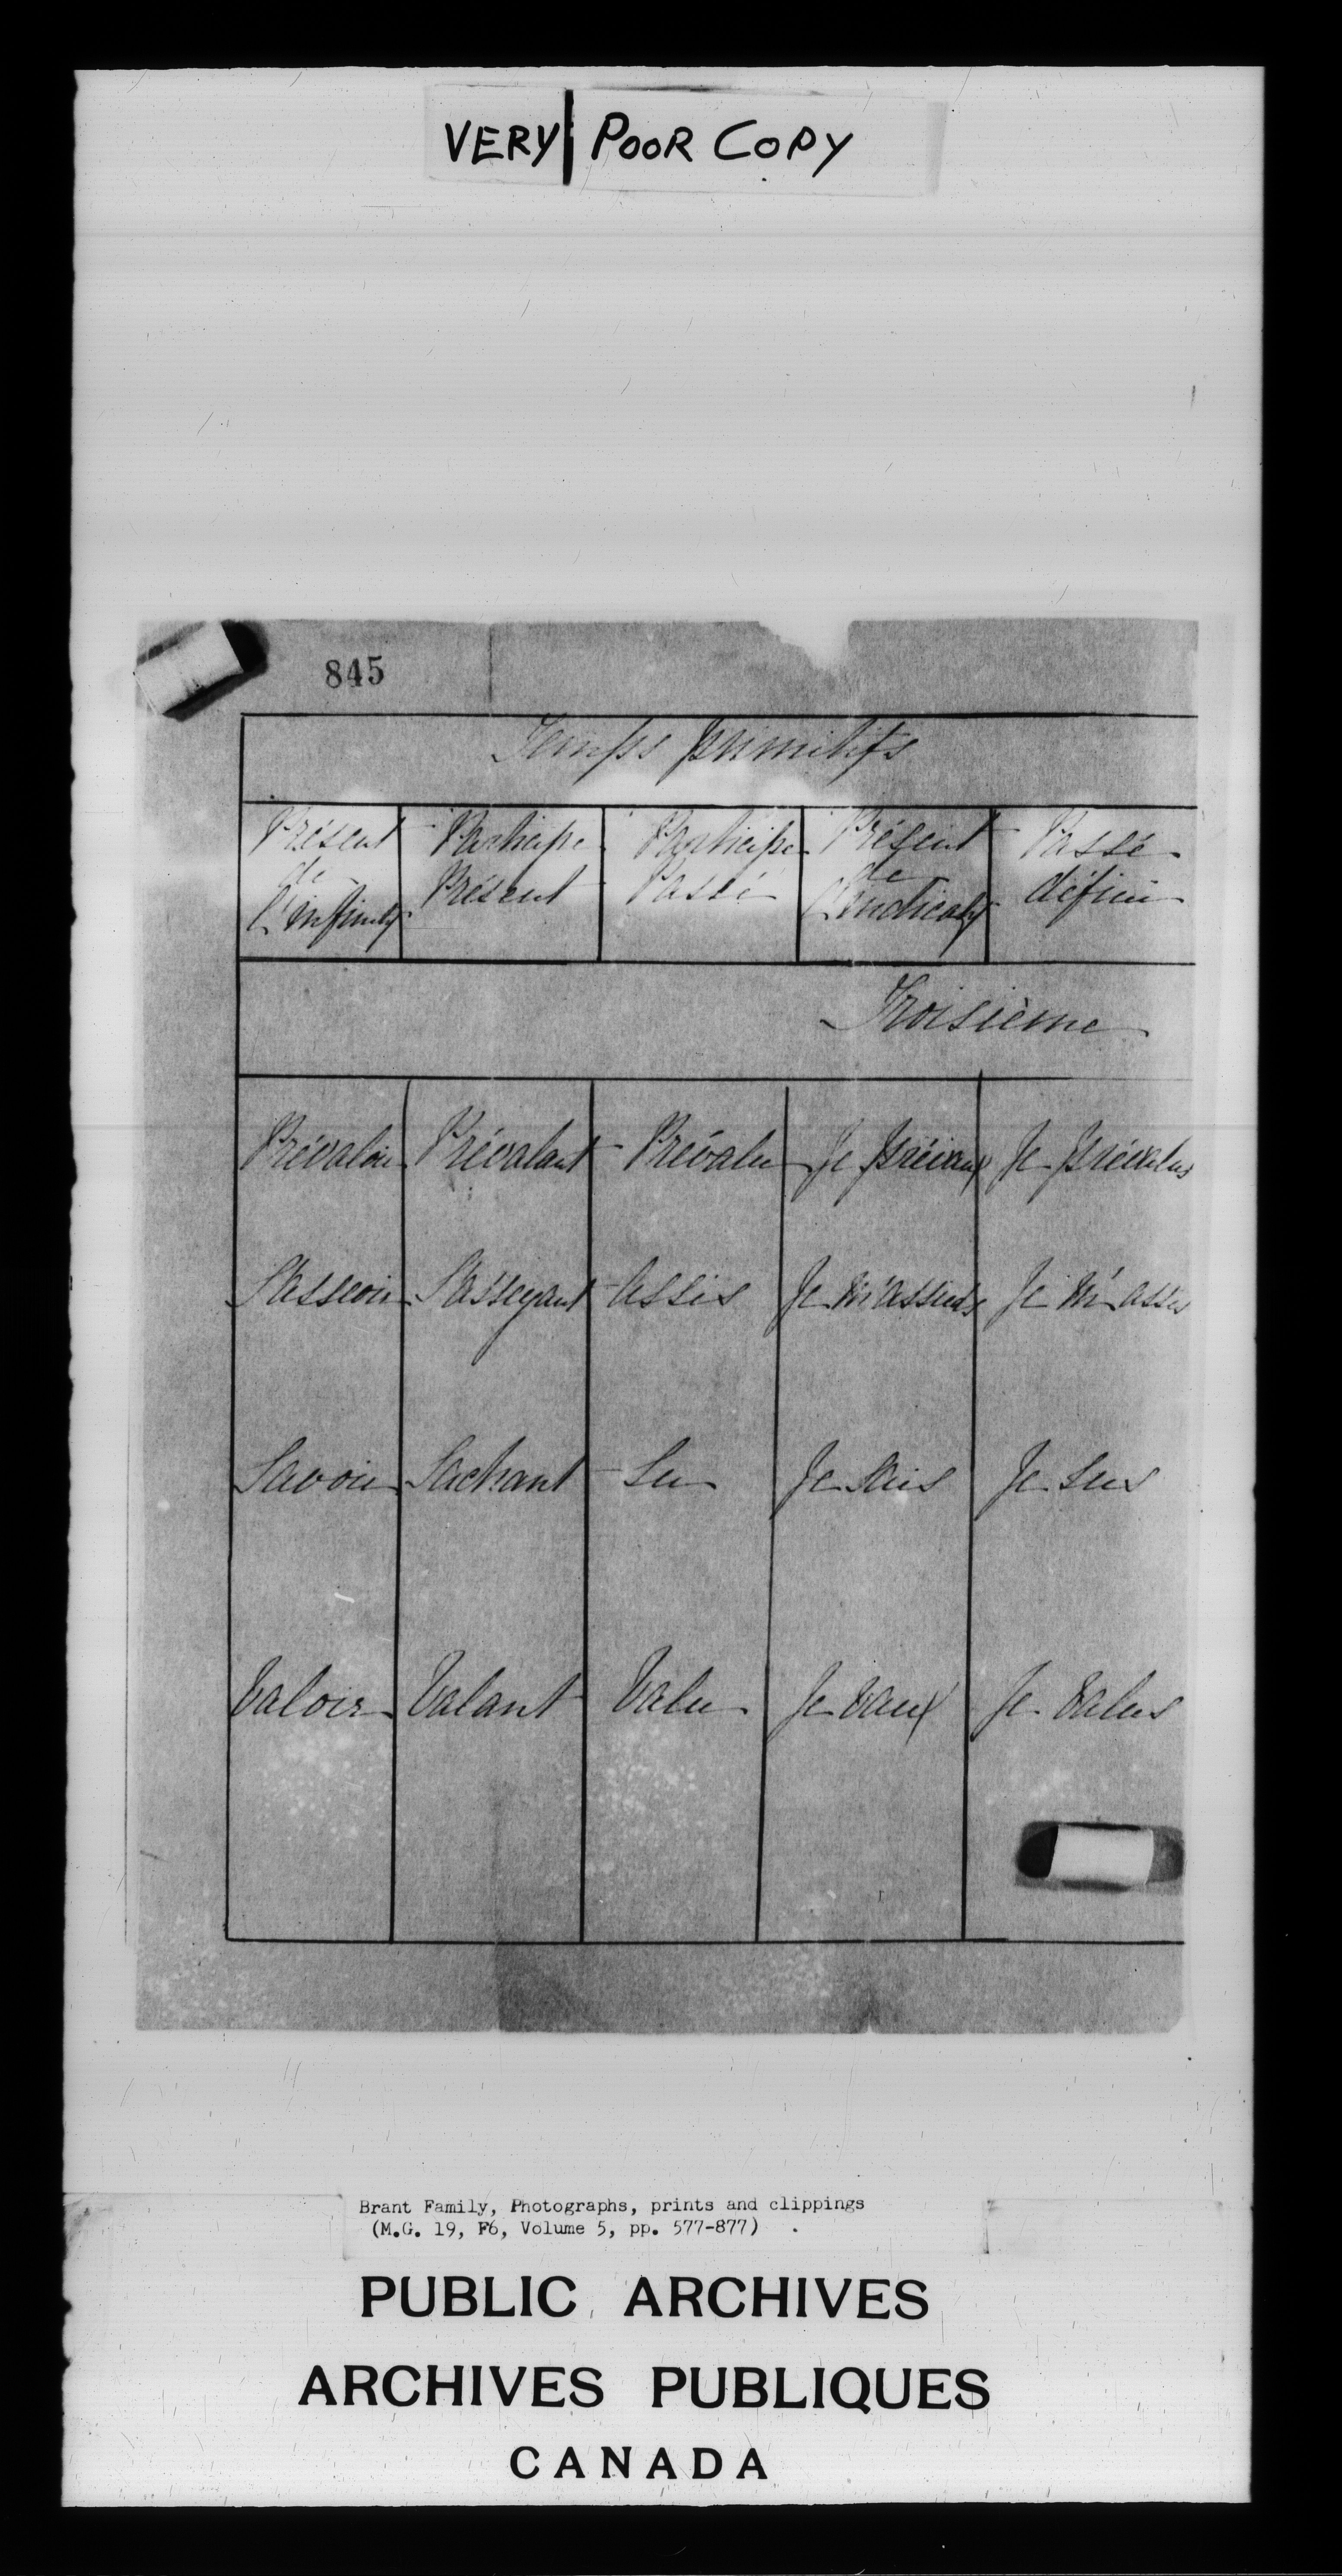 VERY POOR COPY
845
Temps primitifs
Présent de l'infinitif | Participe Présent | Participe Passé | Présent de l'indicatif | Passé défini
Troisième
Prévaloir | Prévalant | Prévalu | Je prévaux | Je prévalus
S'asseoir | S'asseyant | Assis | Je m'assieds | Je m'assis
Savoir | Sachant | Su | Je sais | Je sus
Valoir | Valant | Valu | Je vaux | Je valus
Brant Family, Photographs, prints and clippings
(M.G. 19, F6, Volume 5, pp. 577-877)
PUBLIC ARCHIVES
ARCHIVES PUBLIQUES
CANADA